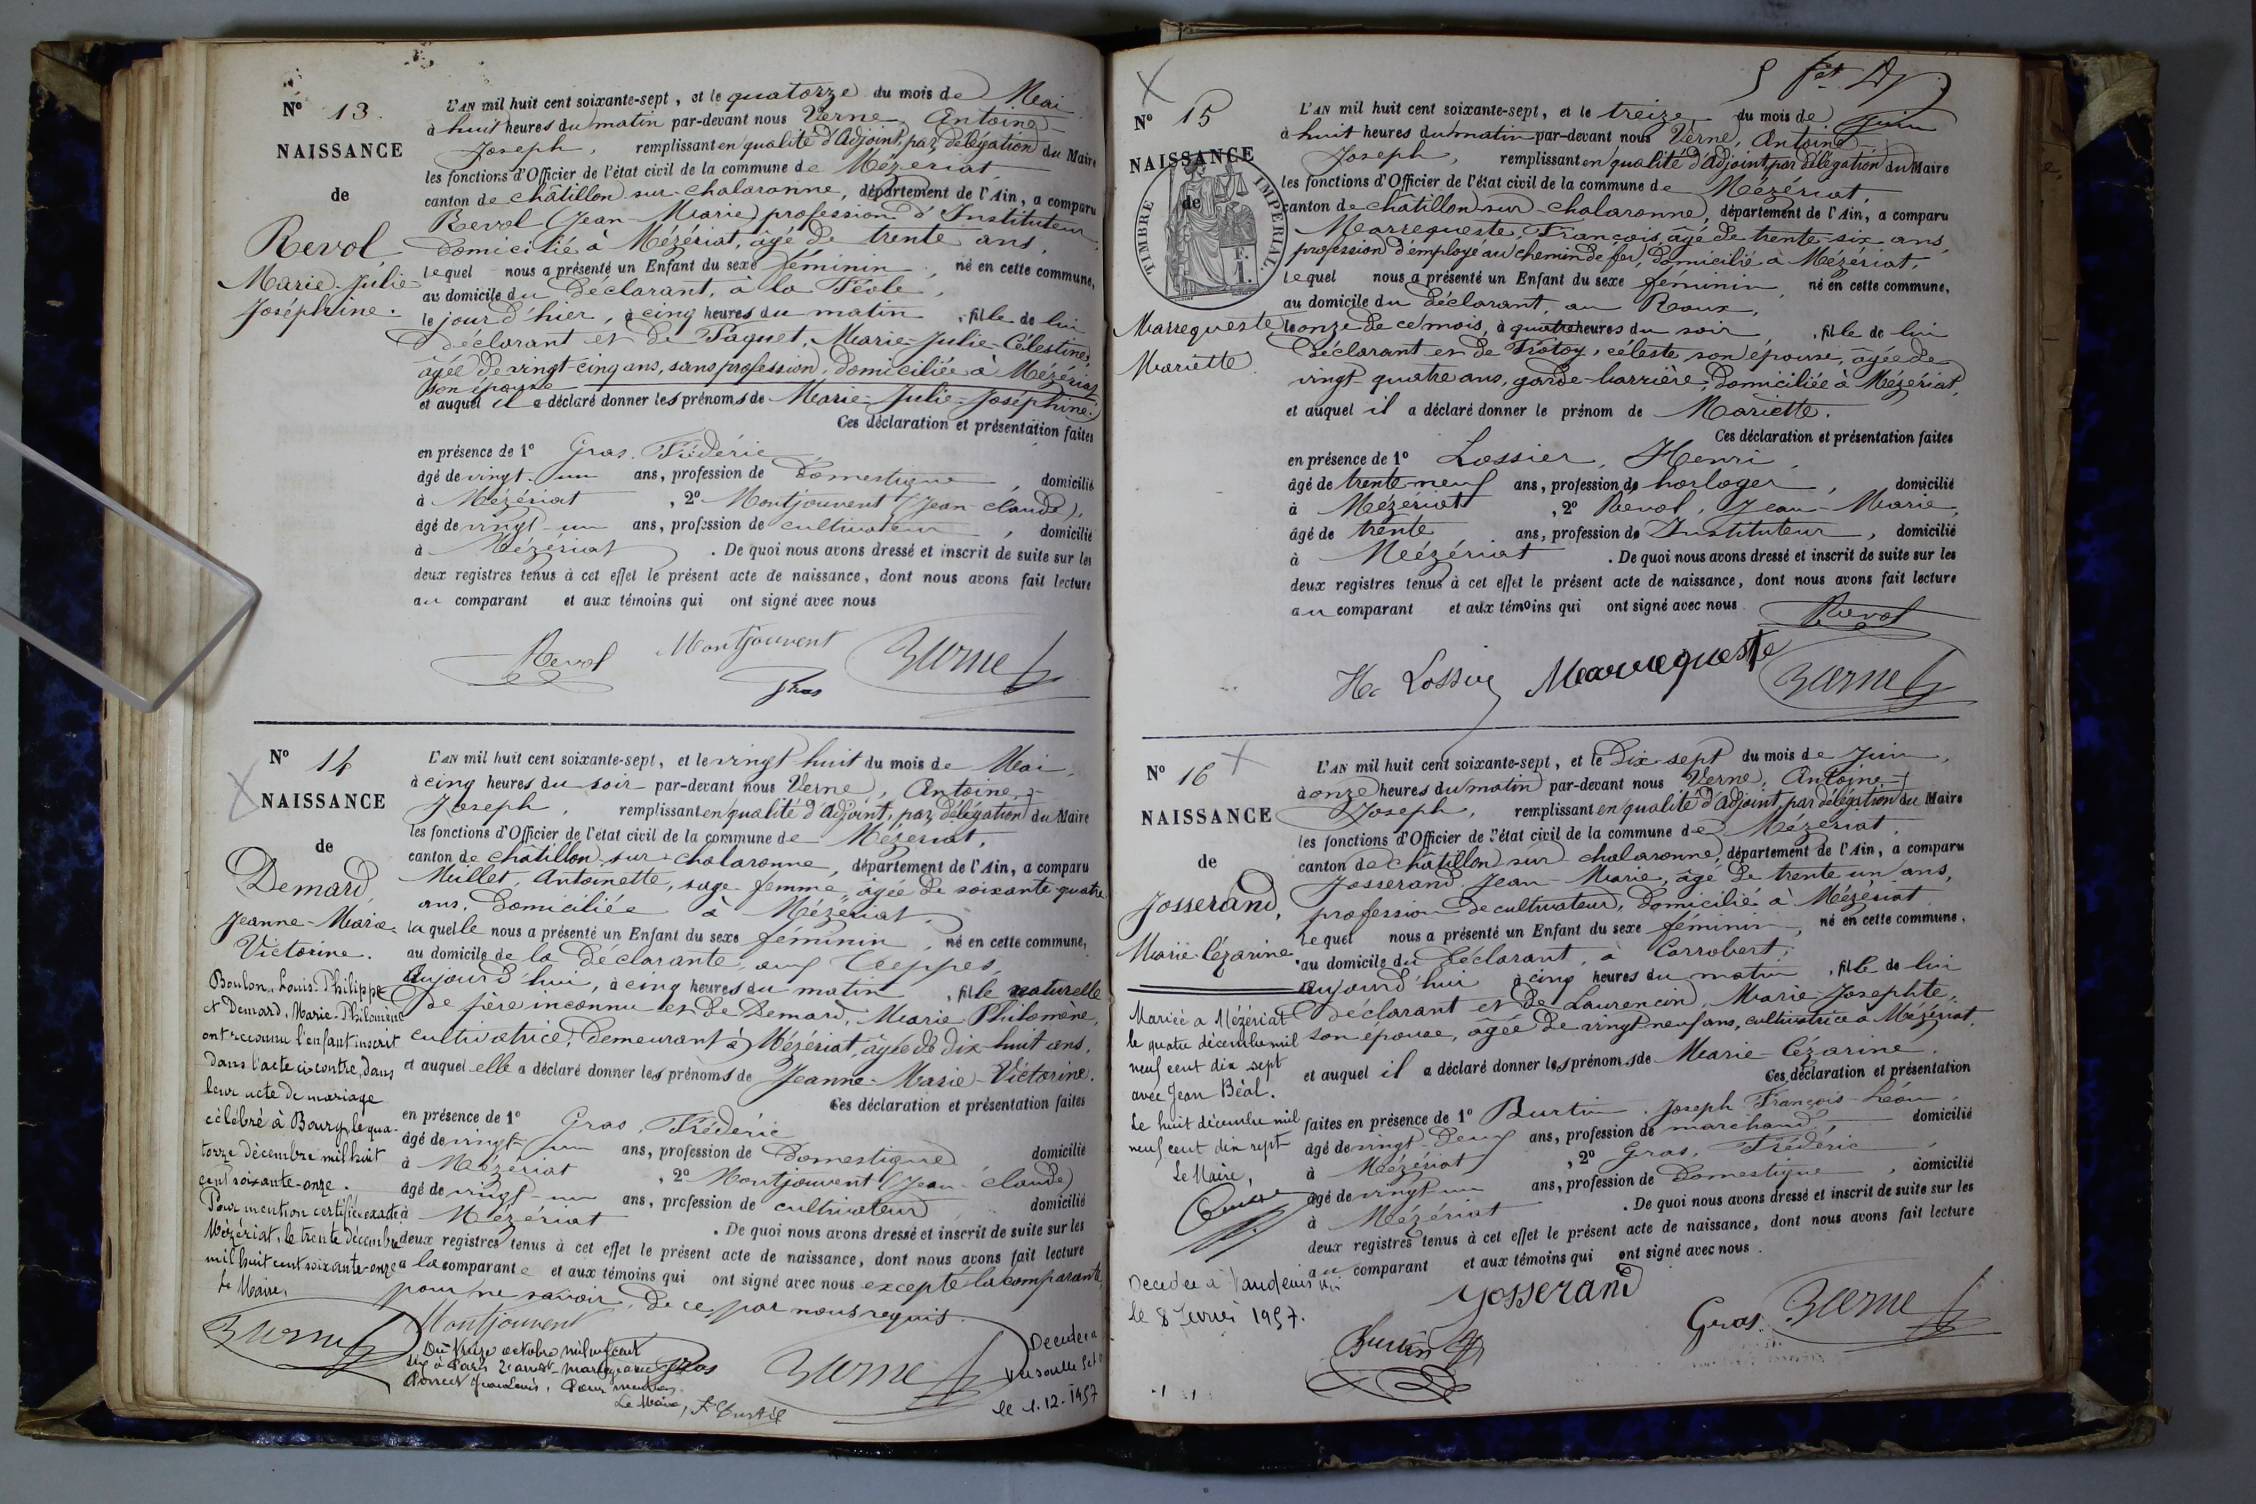 No 13.
NAISSANCE
de
Revol
Marie-Julie-
Joséphine.
L'AN mil huit cent soixante-sept, et le quatorze du mois de Mai
à huit heures du matin par-devant nous Verne, Antoine-
Joseph, remplissant en qualité d'Adjoint, par délégation du Maire
les fonctions d'Officier de l'état civil de la commune de Mézériat,
canton de châtillon-sur-chalaronne, département de l'Ain, a comparu
Revol (Jean-Marie) profession d'Instituteur,
domicilié à Mézériat, âgé de trente ans,
lequel nous a présenté un Enfant du sexe féminin, né en cette commune,
au domicile du Déclarant, à la
le jour d'hier, à cinq heures du matin, fille de lui
Déclarant et de Paquet, Marie-Julie-Célestine,
âgée de vingt-cinq ans, sans profession, domiciliée à Mézériat
son épouse
et auquel il a déclaré donner les prénoms de Marie-Julie-Joséphine.
Ces déclaration et présentation faites
en présence de 1o Gras, Frédéric
âgé de vingt-un ans, profession de Domestique, domicilié
à Mézériat, 2o Montjouvent (Jean-claude),
âgé de vingt-un ans, profession de cultivateur, domicilié
à Mézériat. De quoi nous avons dressé et inscrit de suite sur les
deux registres tenus à cet effet le présent acte de naissance, dont nous avons fait lecture
au comparant et aux témoins qui ont signé avec nous
Revol Montjouvent Verne
Gras
No 14
NAISSANCE
de
Demard,
Jeanne-Marie-
Victorine.
Boulon, Louis-Philippe
et Demard, Marie-Philomène
ont reconnu l'enfant inscrit
dans l'acte ci-contre, dans
leur acte de mariage
célébré à Bourg, le qua-
torze décembre mil huit
cent soixante-onze.
Pour mention certifiée exacte
Mézériat, le trente décembre
mil huit cent soixante-onze
Le Maire,
Verne
L'AN mil huit cent soixante-sept, et le vingt huit du mois de Mai,
à cinq heures du soir par-devant nous Verne, Antoine-
Joseph, remplissant en qualité d'Adjoint, par délégation du Maire
les fonctions d'Officier de l'état civil de la commune de Mézériat,
canton de châtillon-sur-chalaronne, département de l'Ain, a comparu
Millet, Antoinette, sage-femme, âgée de soixante quatre
ans, domiciliée à Mézériat,
laquelle nous a présenté un Enfant du sexe féminin, né en cette commune,
au domicile de la Déclarante, aux Teppes,
Aujourd'hui, à cinq heures du matin, fille naturelle
De père inconnu et de Demard, Marie Philomène,
cultivatrice, demeurant à Mézériat, âgée de dix-huit ans,
et auquel elle a déclaré donner les prénoms de Jeanne-Marie-Victorine.
Ces déclaration et présentation faites
en présence de 1o Gras, Frédéric
âgé de vingt-un ans, profession de Domestique domicilié
à Mézériat, 2o Montjouvent (Jean-claude)
âgé de vingt-un ans, profession de cultivateur domicilié
à Mézériat. De quoi nous avons dressé et inscrit de suite sur les
deux registres tenus à cet effet le présent acte de naissance, dont nous avons fait lecture
a la comparante et aux témoins qui ont signé avec nous excepté la comparante,
pour ne savoir, de ce par nous requis.
Montjouvent
Du treize octobre mil neuf cent
dix à Paris mariage avec
Pour mention
Le Maire,
Gras
Verne
Décédée à
le 1.12.1957
No 15
NAISSANCE
de
TIMBRE IMPERIAL.
1 F.
Marrequeste
Mariette
L'AN mil huit cent soixante-sept, et le treize du mois de Juin
à huit heures du matin par-devant nous Verne, Antoine-
Joseph, remplissant en qualité d'Adjoint, par délégation du Maire
les fonctions d'Officier de l'état civil de la commune de Mézériat,
canton de châtillon-sur-chalaronne, département de l'Ain, a comparu
Marrequeste, François, âgé de trente-six ans,
profession d'employé au chemin de fer, domicilié à Mézériat,
lequel nous a présenté un Enfant du sexe féminin, né en cette commune,
au domicile du Déclarant, au Roux,
le onze de ce mois, à quatre heures du soir, fille de lui
Déclarant et de Trotoy, céleste, son épouse, âgée de
vingt-quatre ans, garde-barrière, domiciliée à Mézériat,
et auquel il a déclaré donner le prénom de Mariette.
Ces déclaration et présentation faites
en présence de 1o Lossier, Henri,
âgé de trente-neuf ans, profession de horloger, domicilié
à Mézériat, 2o Revol, Jean-Marie,
âgé de trente ans, profession de Instituteur, domicilié
à Mézériat. De quoi nous avons dressé et inscrit de suite sur les
deux registres tenus à cet effet le présent acte de naissance, dont nous avons fait lecture
au comparant et aux témoins qui ont signé avec nous
Revol
Lossier Marrequeste Verne
No 16
NAISSANCE
de
Josserand,
Marie-Cézarine.
Mariée à Mézériat
le quatre décembre mil
neuf cent dix sept
avec Jean Béal.
Le huit décembre mil
neuf cent dix sept
Le Maire,
Décédée à
le 8 Février 1957.
L'AN mil huit cent soixante-sept, et le Dix-sept du mois de Juin,
à onze heures du matin par-devant nous Verne, Antoine-
Joseph, remplissant en qualité d'Adjoint, par délégation du Maire
les fonctions d'Officier de l'état civil de la commune de Mézériat,
canton de châtillon-sur-chalaronne, département de l'Ain, a comparu
Josserand, Jean-Marie, âgé de trente-un ans,
profession de cultivateur, domicilié à Mézériat
lequel nous a présenté un Enfant du sexe féminin, né en cette commune,
au domicile du Déclarant, à Corrobert,
Aujourd'hui à cinq heures du matin, fille de lui
Déclarant et de Laurencin, Marie-Josephte,
son épouse, âgée de vingt-neuf ans, cultivatrice à Mézériat,
et auquel il a déclaré donner les prénoms de Marie-Cézarine.
Ces déclaration et présentation
faites en présence de 1o Burtin, Joseph François-Léon,
âgé de vingt-deux ans, profession de marchand, domicilié
à Mézériat, 2o Gras, Frédéric
âgé de vingt-un ans, profession de Domestique, domicilié
à Mézériat. De quoi nous avons dressé et inscrit de suite sur les
deux registres tenus à cet effet le présent acte de naissance, dont nous avons fait lecture
au comparant et aux témoins qui ont signé avec nous.
Josserand
Burtin Gras Verne